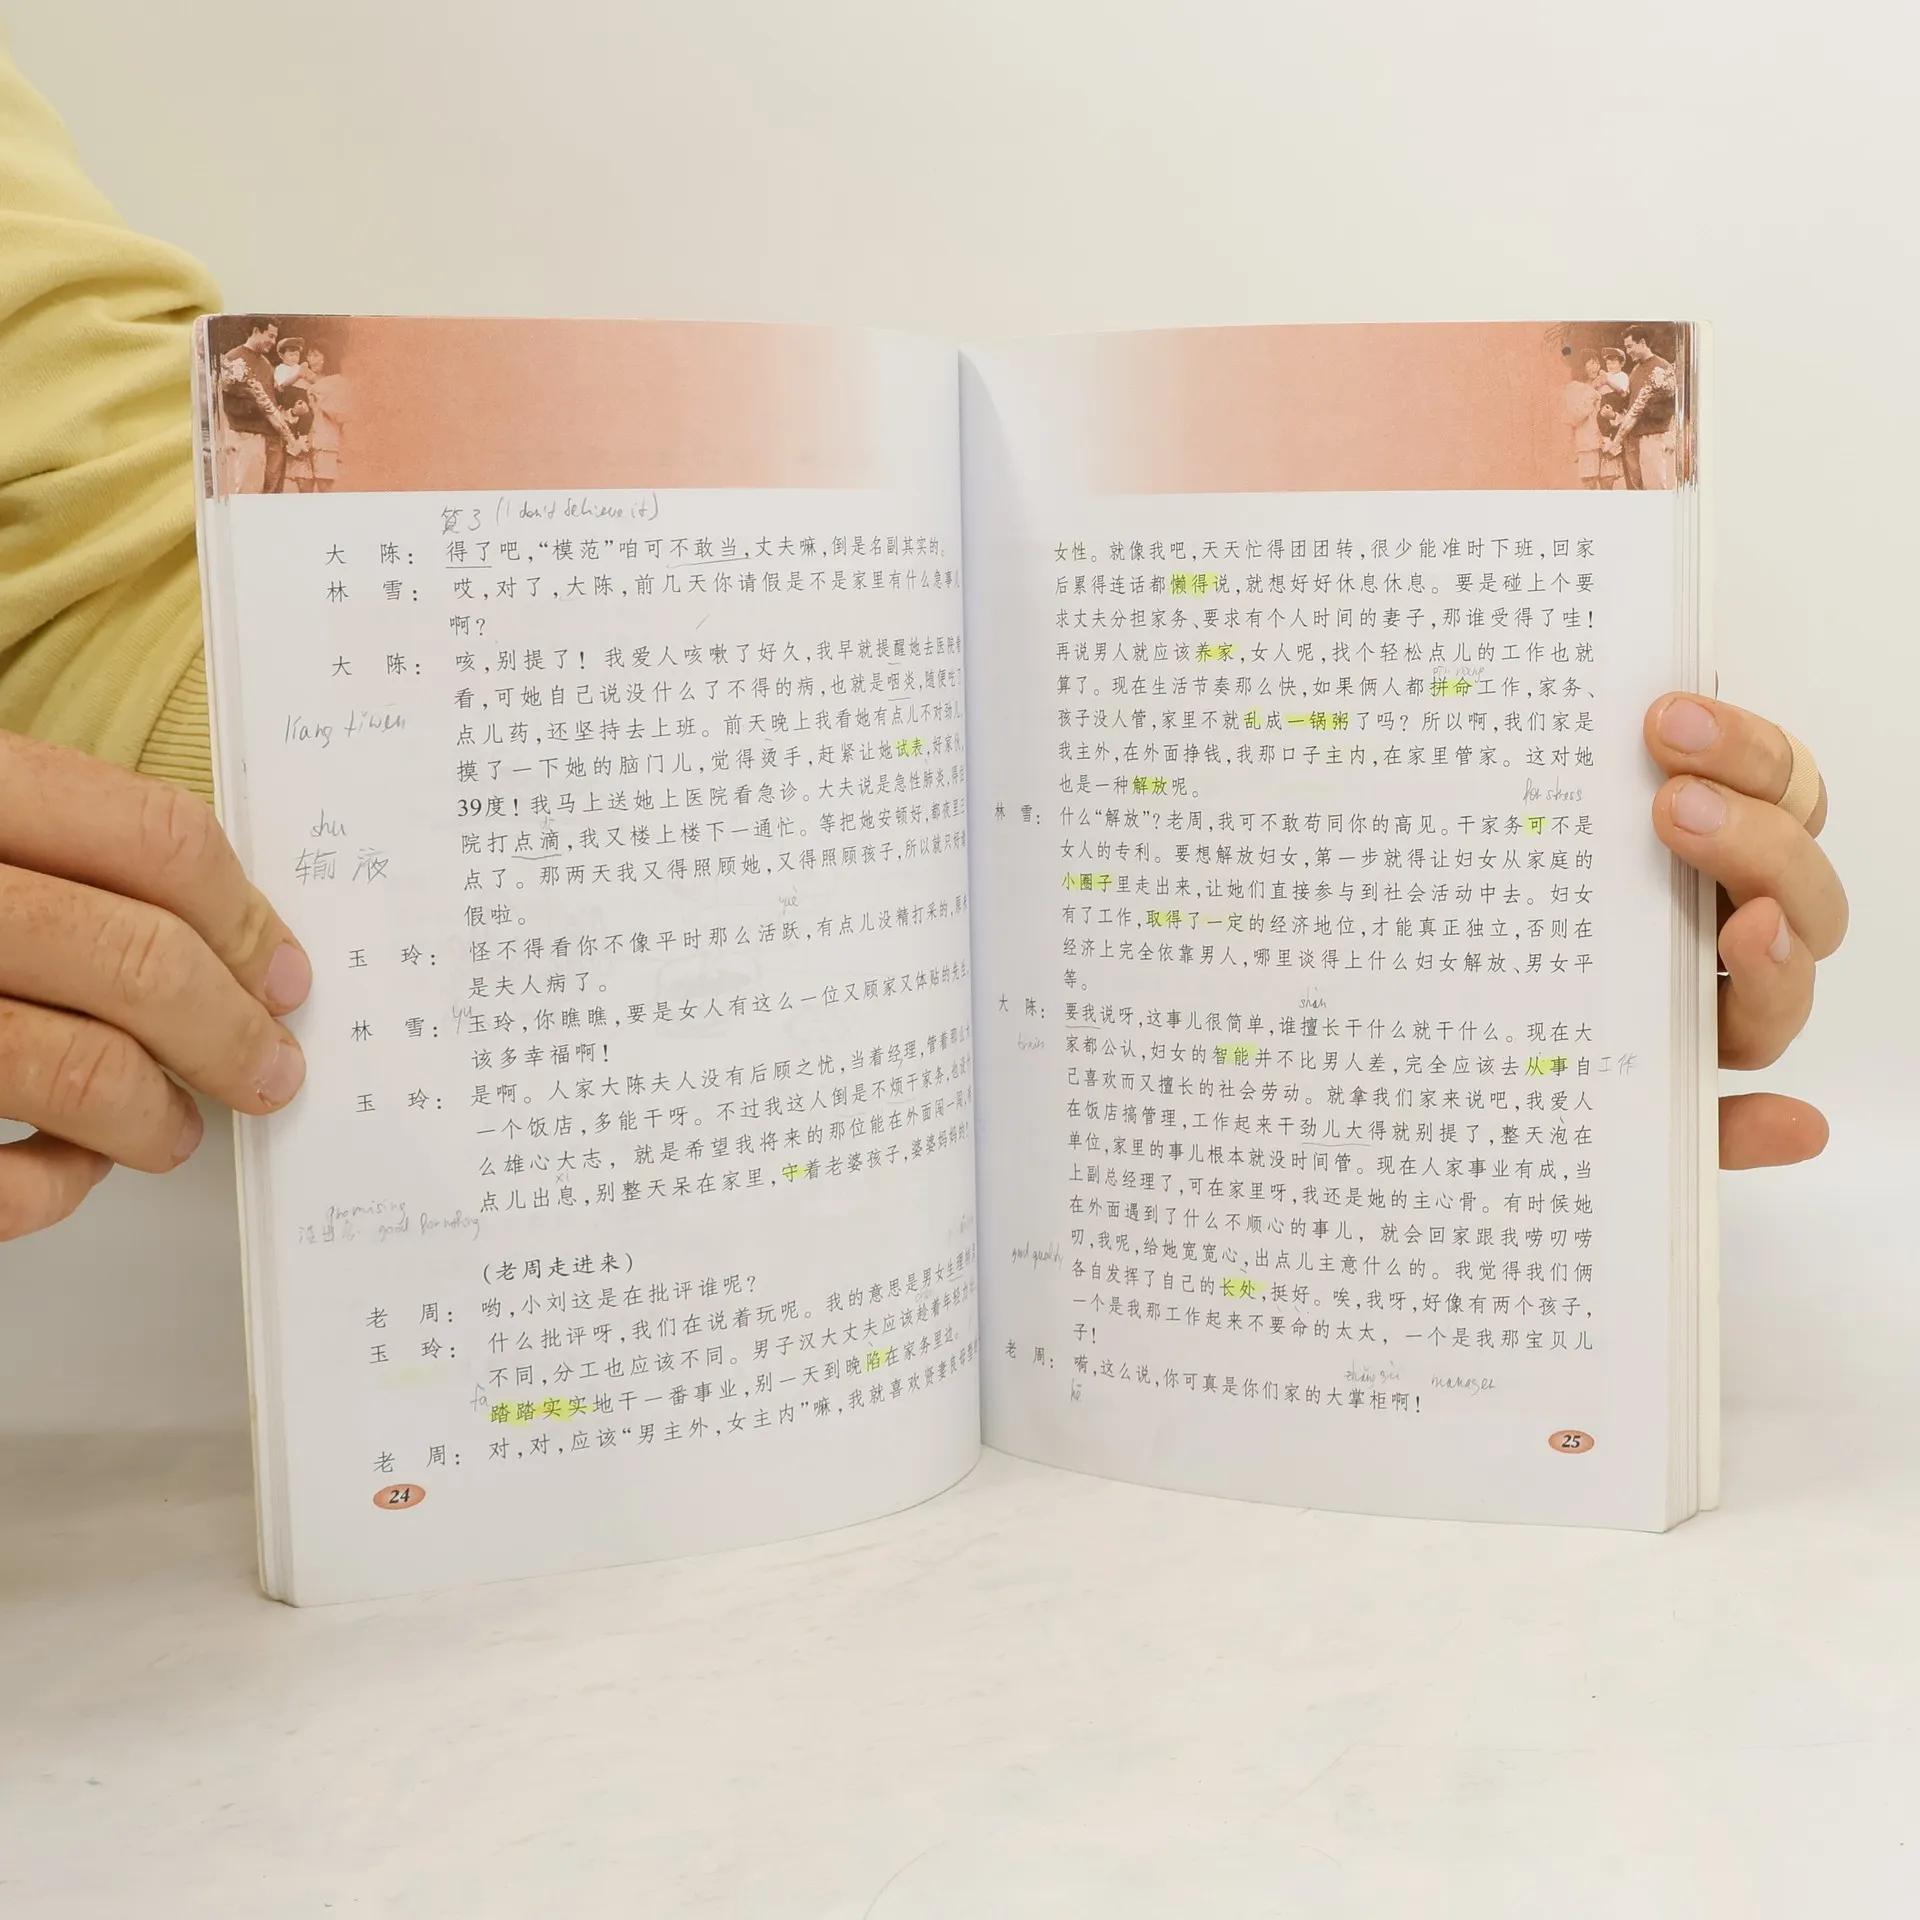 算了 (I don't believe it)
大 陈： 得了吧，“模范”咱可不敢当，丈夫嘛，倒是名副其实的。
林 雪： 哎，对了，大陈，前几天你请假是不是家里有什么急事儿
啊？
大 陈： 咳，别提了！我爱人咳嗽了好久，我早就提醒她去医院看
看，可她自己说没什么了不得的病，也就是咽炎，随便吃了
liang tǐwēn
点儿药，还坚持去上班。前天晚上我看她有点儿不对劲儿，
摸了一下她的脑门儿，觉得烫手，赶紧让她试表，好家伙，
39度！我马上送她上医院看急诊。大夫说是急性肺炎，得住
shu
院打点滴，我又楼上楼下一通忙。等把她安顿好，都夜里三
输液
点了。那两天我又得照顾她，又得照顾孩子，所以就只好请
假啦。
yuè
玉 玲： 怪不得看你不像平时那么活跃，有点儿没精打采的，原来
是夫人病了。
林 雪： 玉玲，你瞧瞧，要是女人有这么一位又顾家又体贴的先生，
yu
该多幸福啊！
玉 玲： 是啊。人家大陈夫人没有后顾之忧，当着经理，管着那么大
一个饭店，多能干呀。不过我这人倒是不烦干家务，也没什
么雄心大志，就是希望我将来的那位能在外面闯一闯，有
xi
点儿出息，别整天呆在家里，守着老婆孩子，婆婆妈妈的！
promising
没出息. good for nothing
（老周走进来）
老 周： 哟，小刘这是在批评谁呢？
玉 玲： 什么批评呀，我们在说着玩呢。我的意思是男女生理特点
不同，分工也应该不同。男子汉大丈夫应该趁着年轻力壮，
踏踏实实地干一番事业，别一天到晚陷在家务里边。
老 周： 对，对，应该“男主外，女主内”嘛，我就喜欢贤妻良母型的
24
女性。就像我吧，天天忙得团团转，很少能准时下班，回家
后累得连话都懒得说，就想好好休息休息。要是碰上个要
求丈夫分担家务、要求有个人时间的妻子，那谁受得了哇！
再说男人就应该养家，女人呢，找个轻松点儿的工作也就
算了。现在生活节奏那么快，如果俩人都拼命工作，家务、
孩子没人管，家里不就乱成一锅粥了吗？所以啊，我们家是
我主外，在外面挣钱，我那口子主内，在家里管家。这对她
也是一种解放呢。
for stress
林 雪： 什么“解放”？老周，我可不敢苟同你的高见。干家务可不是
女人的专利。要想解放妇女，第一步就得让妇女从家庭的
小圈子里走出来，让她们直接参与到社会活动中去。妇女
有了工作，取得了一定的经济地位，才能真正独立，否则在
经济上完全依靠男人，哪里谈得上什么妇女解放、男女平
等。
shàn
大 陈： 要我说呀，这事儿很简单，谁擅长干什么就干什么。现在大
家都公认，妇女的智能并不比男人差，完全应该去从事自 工作
己喜欢而又擅长的社会劳动。就拿我们家来说吧，我爱人
在饭店搞管理，工作起来干劲儿大得就别提了，整天泡在
单位，家里的事儿根本就没时间管。现在人家事业有成，当
上副总经理了，可在家里呀，我还是她的主心骨。有时候她
在外面遇到了什么不顺心的事儿，就会回家跟我唠叨唠
叨，我呢，给她宽宽心，出点儿主意什么的。我觉得我们俩
good quality
各自发挥了自己的长处，挺好。唉，我呀，好像有两个孩子，
一个是我那工作起来不要命的太太，一个是我那宝贝儿
子！
zhǎng guì manager
老 周： 嗬，这么说，你可真是你们家的大掌柜啊！
hē
25